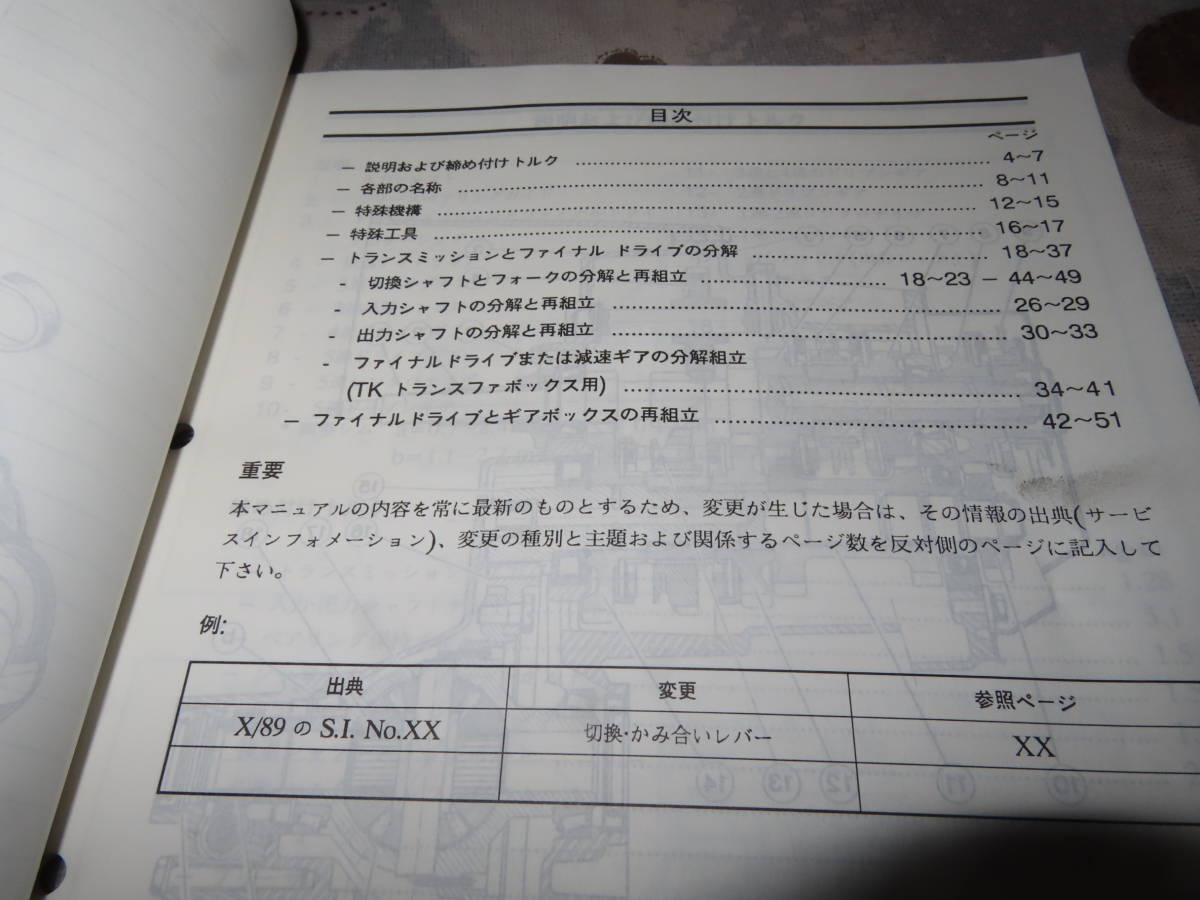 目次
ページ
— 説明および締め付けトルク ........ 4～7
— 各部の名称 ........ 8～11
— 特殊機構 ........ 12～15
— 特殊工具 ........ 16～17
— トランスミッションとファイナル ドライブの分解 ........ 18～37
- 切換シャフトとフォークの分解と再組立 ........ 18～23 — 44～49
- 入力シャフトの分解と再組立 ........ 26～29
- 出力シャフトの分解と再組立 ........ 30～33
- ファイナルドライブまたは減速ギアの分解組立
(TK トランスファボックス用) ........ 34～41
— ファイナルドライブとギアボックスの再組立 ........ 42～51
重要
本マニュアルの内容を常に最新のものとするため、変更が生じた場合は、その情報の出典(サービ
スインフォメーション)、変更の種別と主題および関係するページ数を反対側のページに記入して
下さい。
例:
出典 変更 参照ページ
X/89 の S.I. No.XX 切換·かみ合いレバー XX